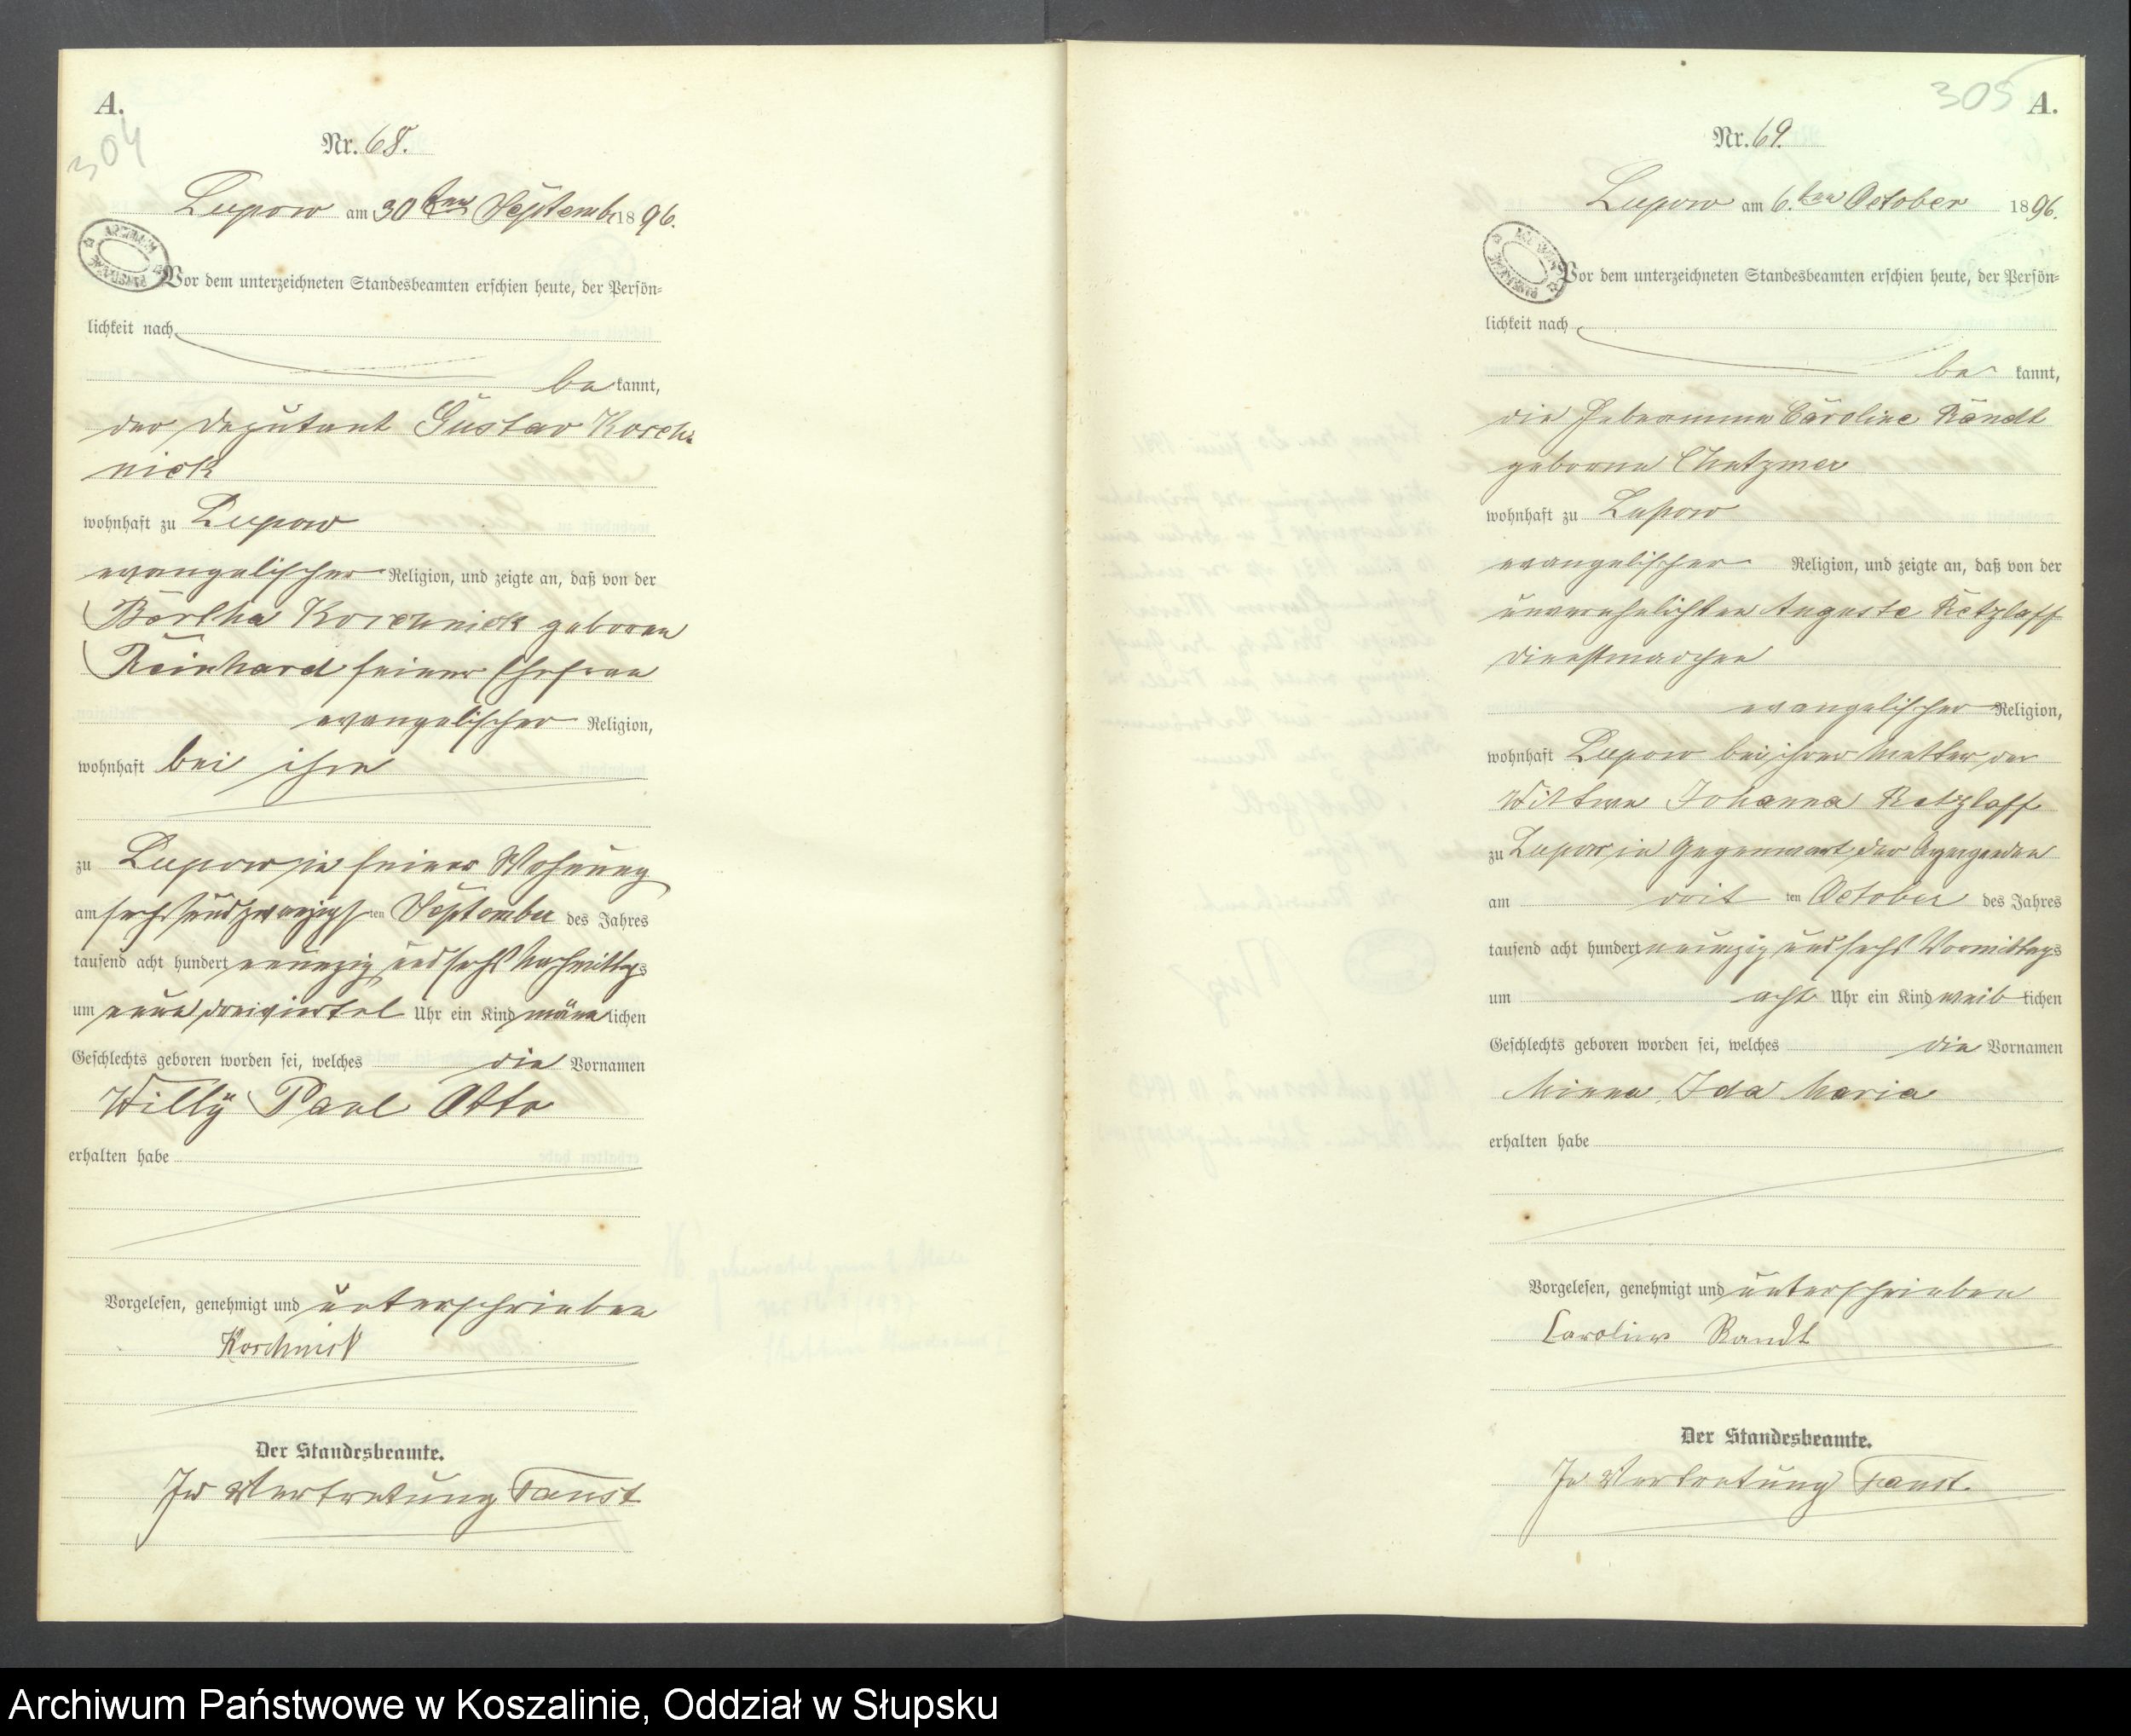 A.
304
Nr. 68.
Lupow am 30ten Septemb. 1896.
Vor dem unterzeichneten Standesbeamten erschien heute, der Persön=
lichkeit nach
be kannt,
der Deputant Gustav Korch=
nick
wohnhaft zu Lupow
evangelischer Religion, und zeigte an, daß von der
Bertha Korchnick geboren
Reinhard seiner Ehefrau
evangelischer Religion,
wohnhaft bei ihm
zu Lupow, in seiner Wohnung
am sechsundzwanzigsten September des Jahres
tausend acht hundert neunzig und sechs Nachmittags
um neun dreiviertel Uhr ein Kind männlichen
Geschlechts geboren worden sei, welches die Vornamen
Willy Paul Otto
erhalten habe
Vorgelesen, genehmigt und unterschrieben
Korchnick
Der Standesbeamte.
In Vertretung Faust
305 A.
Nr. 69.
Lupow am 6.ten October 1896.
Vor dem unterzeichneten Standesbeamten erschien heute, der Persön=
lichkeit nach
be kannt,
die Hebeamme Caroline Randt
geborne
wohnhaft zu Lupow
evangelischer Religion, und zeigte an, daß von der
unverehelichten Auguste Retzlaff
Dienstmädchen
evangelischer Religion,
wohnhaft Lupow bei ihrer Mutter der
Wittwe Johanna Retzlaff
zu Lupow, in Gegenwart der Anzeigenden
am dritten October des Jahres
tausend acht hundert neunzig und sechs Vormittags
um acht Uhr ein Kind weiblichen
Geschlechts geboren worden sei, welches die Vornamen
Minna, Ida Maria
erhalten habe
Vorgelesen, genehmigt und unterschrieben
Caroline Randt
Der Standesbeamte.
In Vertretung Faust.
Archiwum Państwowe w Koszalinie, Oddział w Słupsku